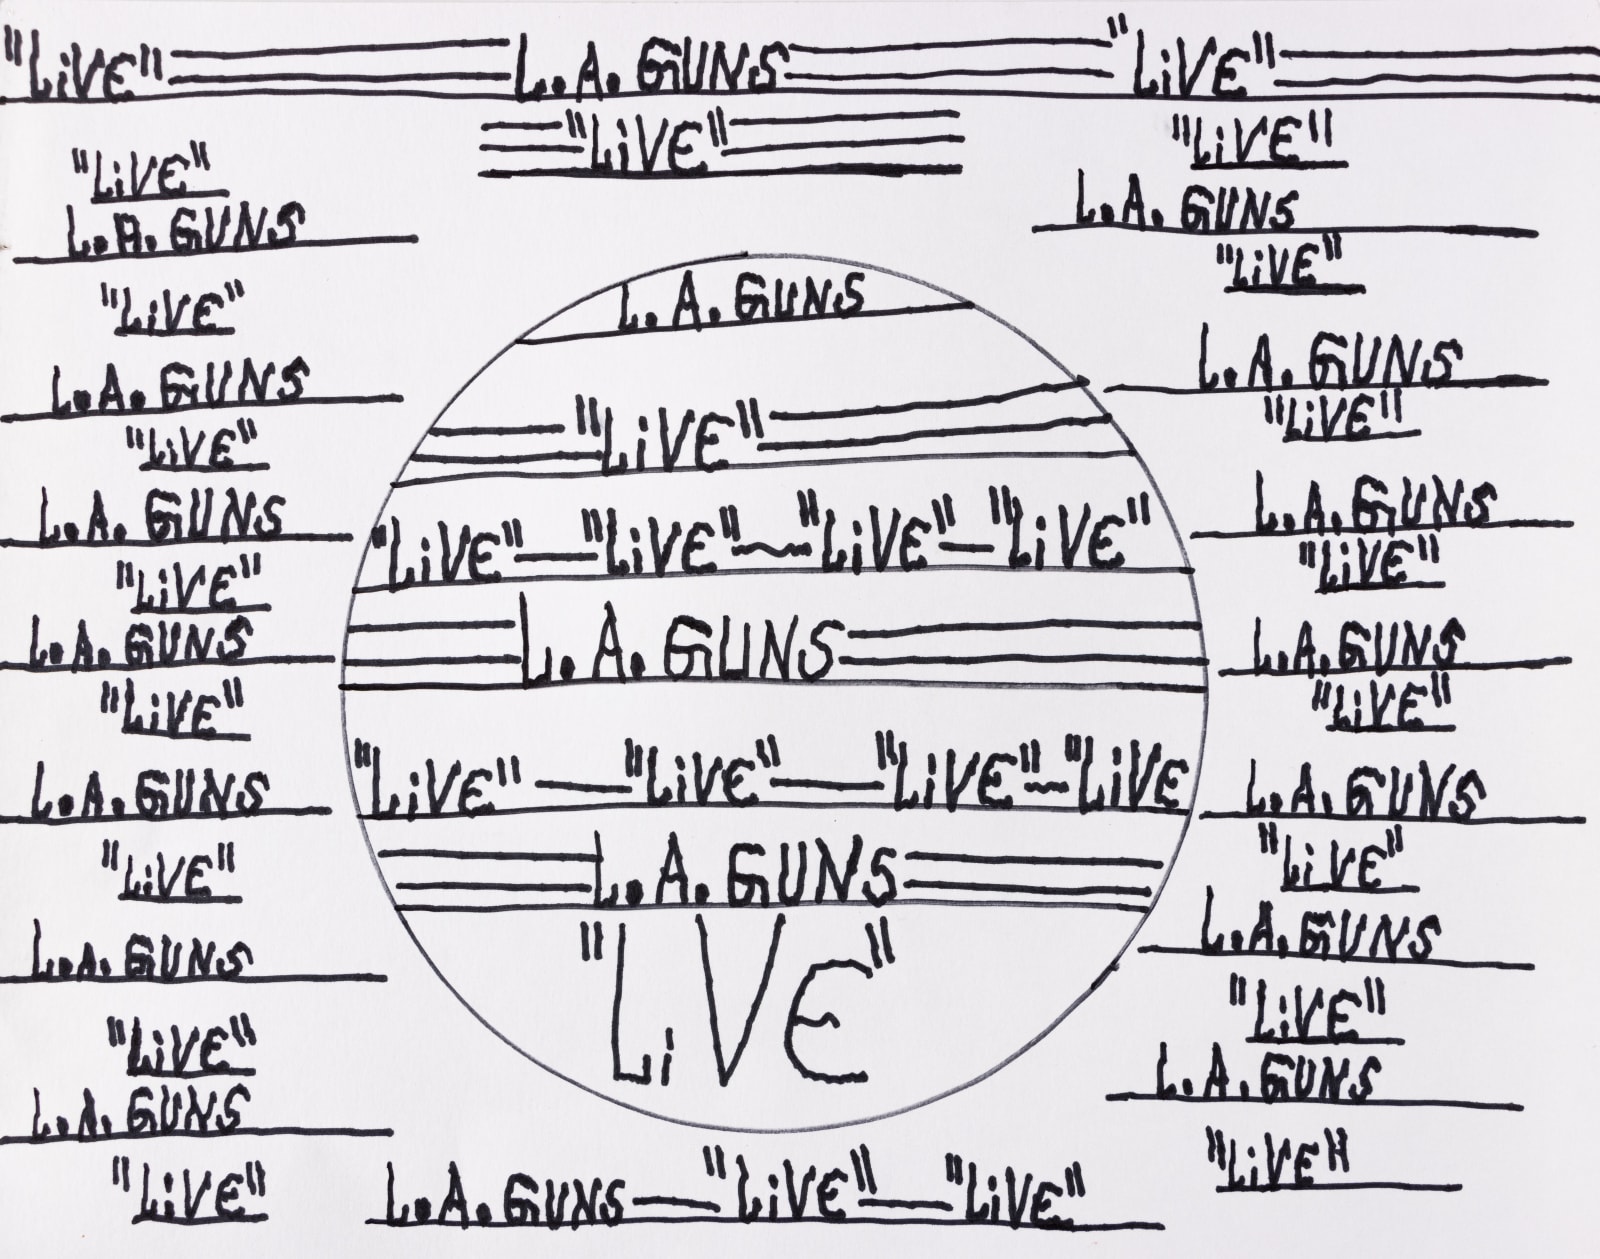 "LiVE" L.A. GUNS "LiVE"
"LiVE"
"LiVE"
L.A. GUNS
"LiVE"
L.A. GUNS
"LiVE"
L.A. GUNS
"LiVE"
L.A. GUNS
"LiVE"
L.A. GUNS
"LiVE"
L.A. GUNS
"LiVE"
L.A. GUNS
"LiVE"
L.A. GUNS
"LiVE"
"LiVE"—"LiVE"~"LiVE"—"LiVE"
L.A. GUNS
"LiVE"—"LiVE"—"LiVE"~"LiVE
L.A. GUNS
"LiVE"
"LiVE"
L.A. GUNS
"LiVE"
L.A. GUNS
"LiVE"
L.A. GUNS
"LiVE"
L.A. GUNS
"LiVE"
L.A. GUNS
"LiVE"
L.A. GUNS
"LiVE"
L.A. GUNS
"LiVE"
L.A. GUNS—"LiVE"—"LiVE"